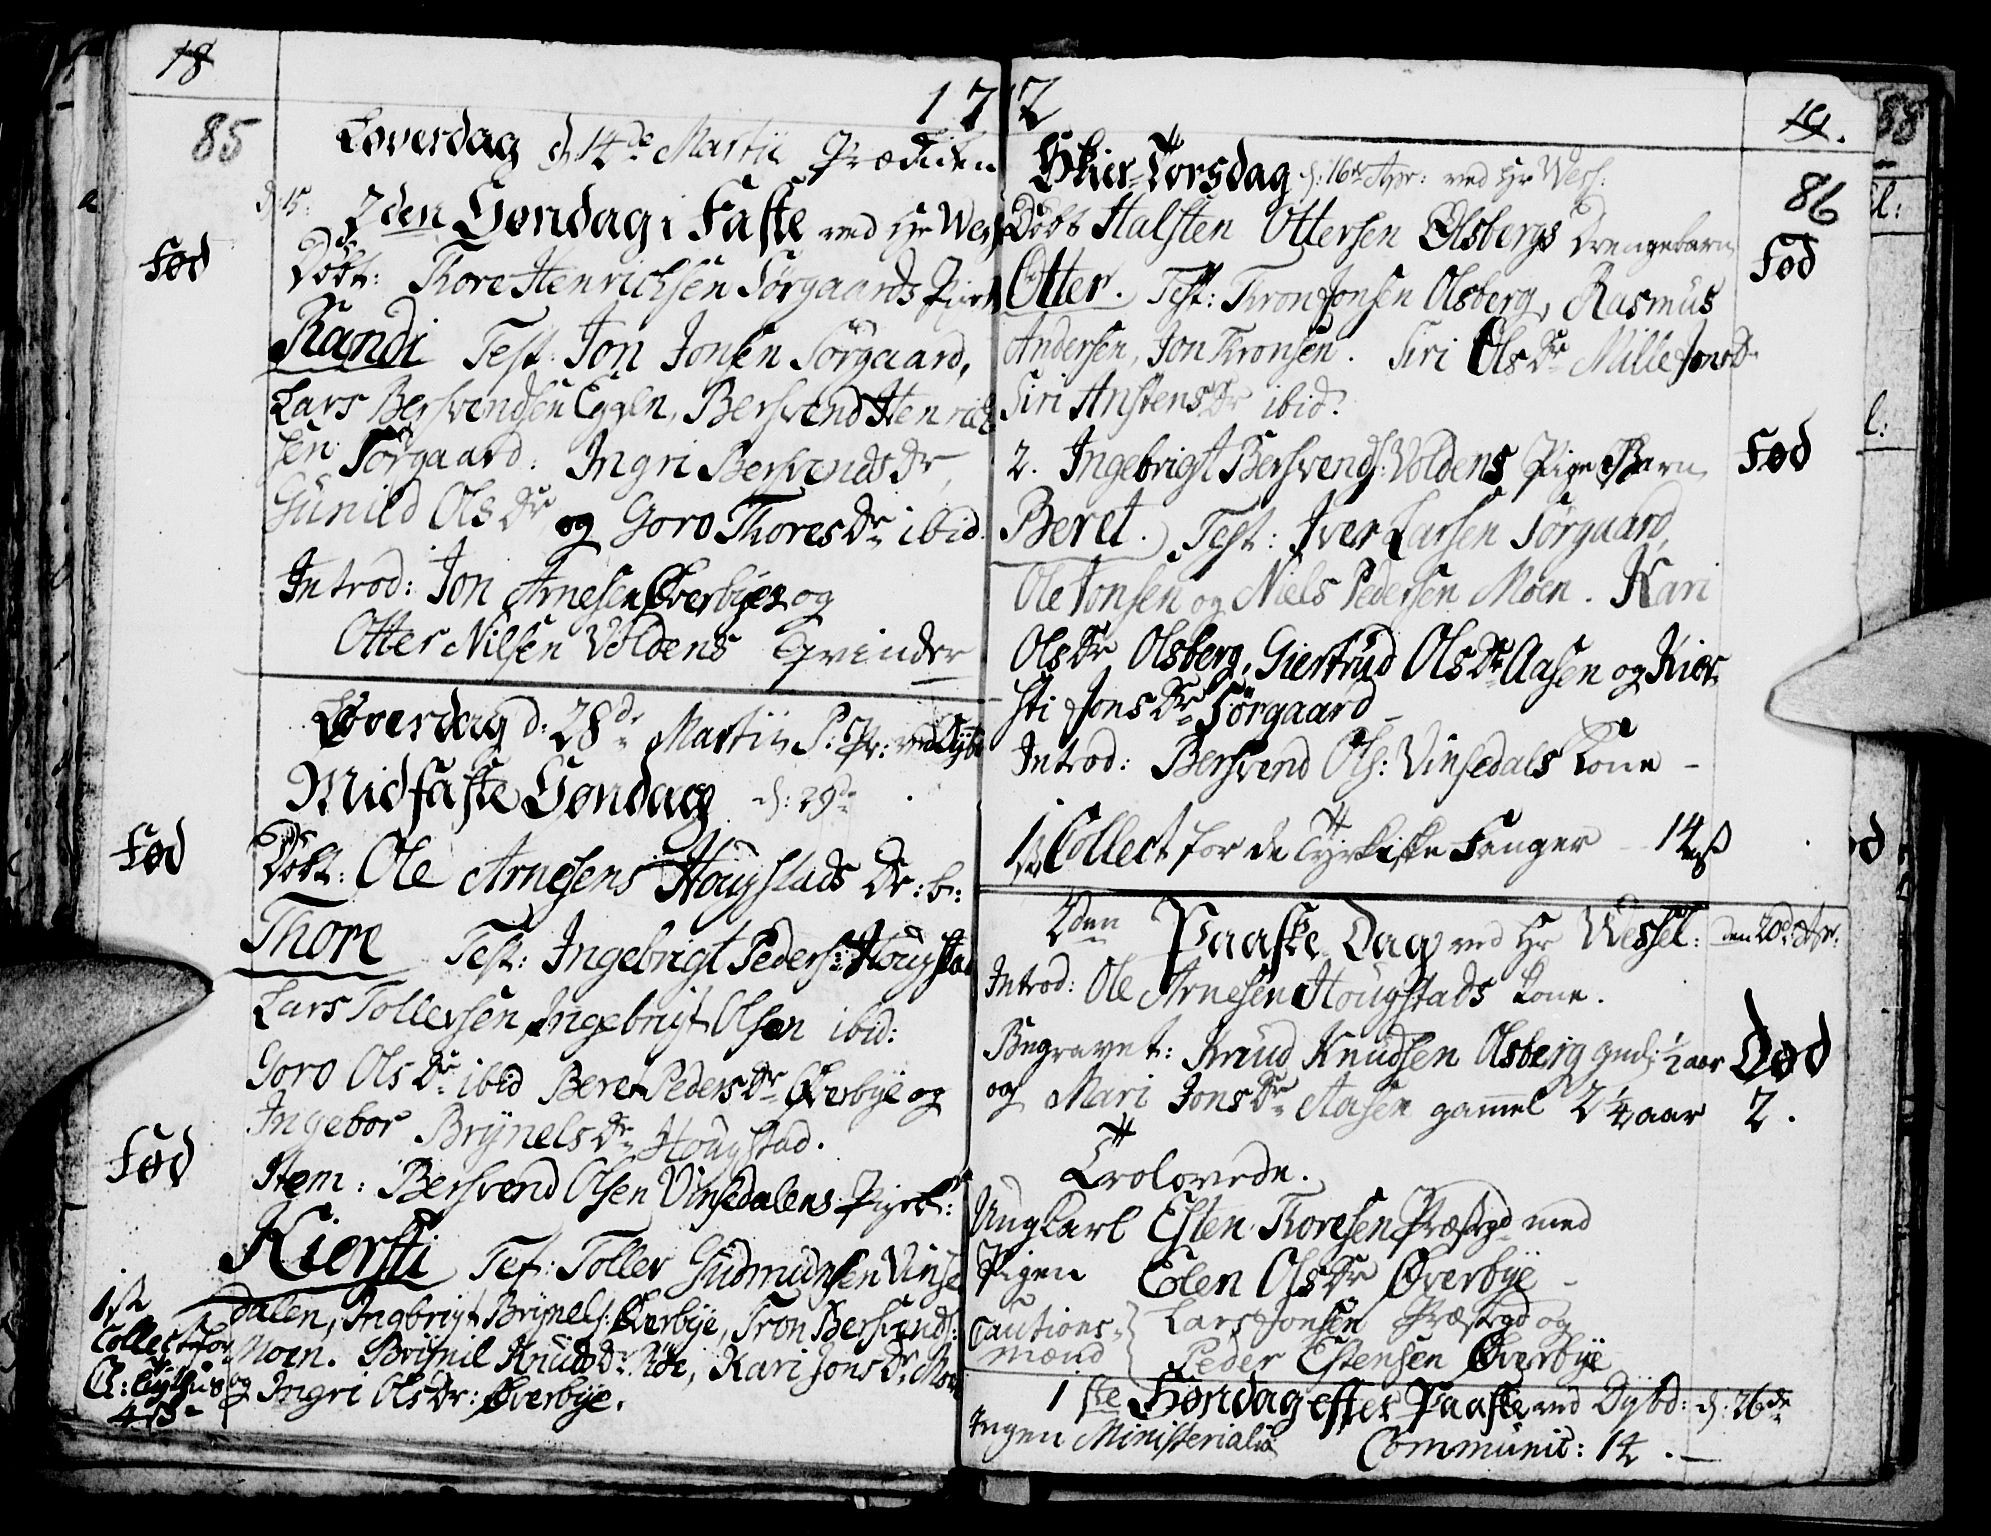 18
85
1772
Løverdag d: 14de Martii Prædiken
d: 15: 2den Søndag i Faste ved Hr Wess
Fød
Døbt: Thore Henrichsen Sørgaards Pigeb
Randi Test: Jon Jonsen Sørgaard,
Lars Bersvendsen Eggen, Bersvend Henrich
sen Sørgaard. Ingri BersvendsDr,
Gunild OlsDr og Goro ThoresDr ibid.
Introd: Jon Arnesen Øverbyes og
Otter Nilsen Voldens Qvinder
Løverdag d: 28de Martii P: Pr: ved Dybd
Midfaste Søndag d: 29de
Fød
Døbt: Ole Arnesens Hougstads Dr: b:
Thore Test: Ingebrigt Peders: Hougstad
Lars Tollersen, Ingebrigt Olsen ibid:
Goro OlsDr ibid Beret PedersDr Øverbye og
Ingebor BrynelsDr Hougstad.
Fød
Item: Bersvend Olsen Vinsedalens Pigeb:
Kiersti Test: Toller Gudmundsen Vinse
dalen, Ingbrigt Brynels: Øverbye, Tron Bersvends:
Moen. Brynil KnudsDr, Kari JonsDr Moen
og Ingri OlsDr: Øverbye.
1ste
Collect for
4 ß
19.
86
Skier-Torsdag d: 16de Apr: ved Hr Wess:
Døbt Halsten Ottersen Olsbergs Drengebarn
Fød
Otter. Test: Tron Jonsen Olsberg, Rasmus
Andersen, Jon Tronsen. Siri OlsDr Mille JonsDr
Siri AnstensDr ibid.
2. Ingebrigt Bersvends: Voldens Pige Barn
Fød
Beret. Test: Iver Larsen Sørgaard,
Ole Jonsen og Niels Pedersen Moen. Kari
OlsDr Olsberg, Giertrud OlsDr Aasen og Kier
sti JonsDr Sørgaard
Introd: Bersvend Ols: Vinsedals Kone
1ste Collect for de Tyrkiske Fanger 14 ß
2den Paaske Dag ved Hr Wessel: den 20de Apr:
Introd: Ole Arnesen Hougstads Kone.
Begravet: Knud Knudsen Olsberg gml: 1/2 aar
og Mari JonsDr Aasen gammel 2 1/4 aar
Død
2.
Trolovede.
Ungkarl Esten Thoresen Præstgd med
Pigen Eden OlsDr Øverbye
Cautions-
mænd
Lars Jonsen Præstgd og
Peder Estensen Øverbye
1ste Søndag efter Paaske ved Dybd: d: 26de
Ingen Ministerialia Communic: 14.
88